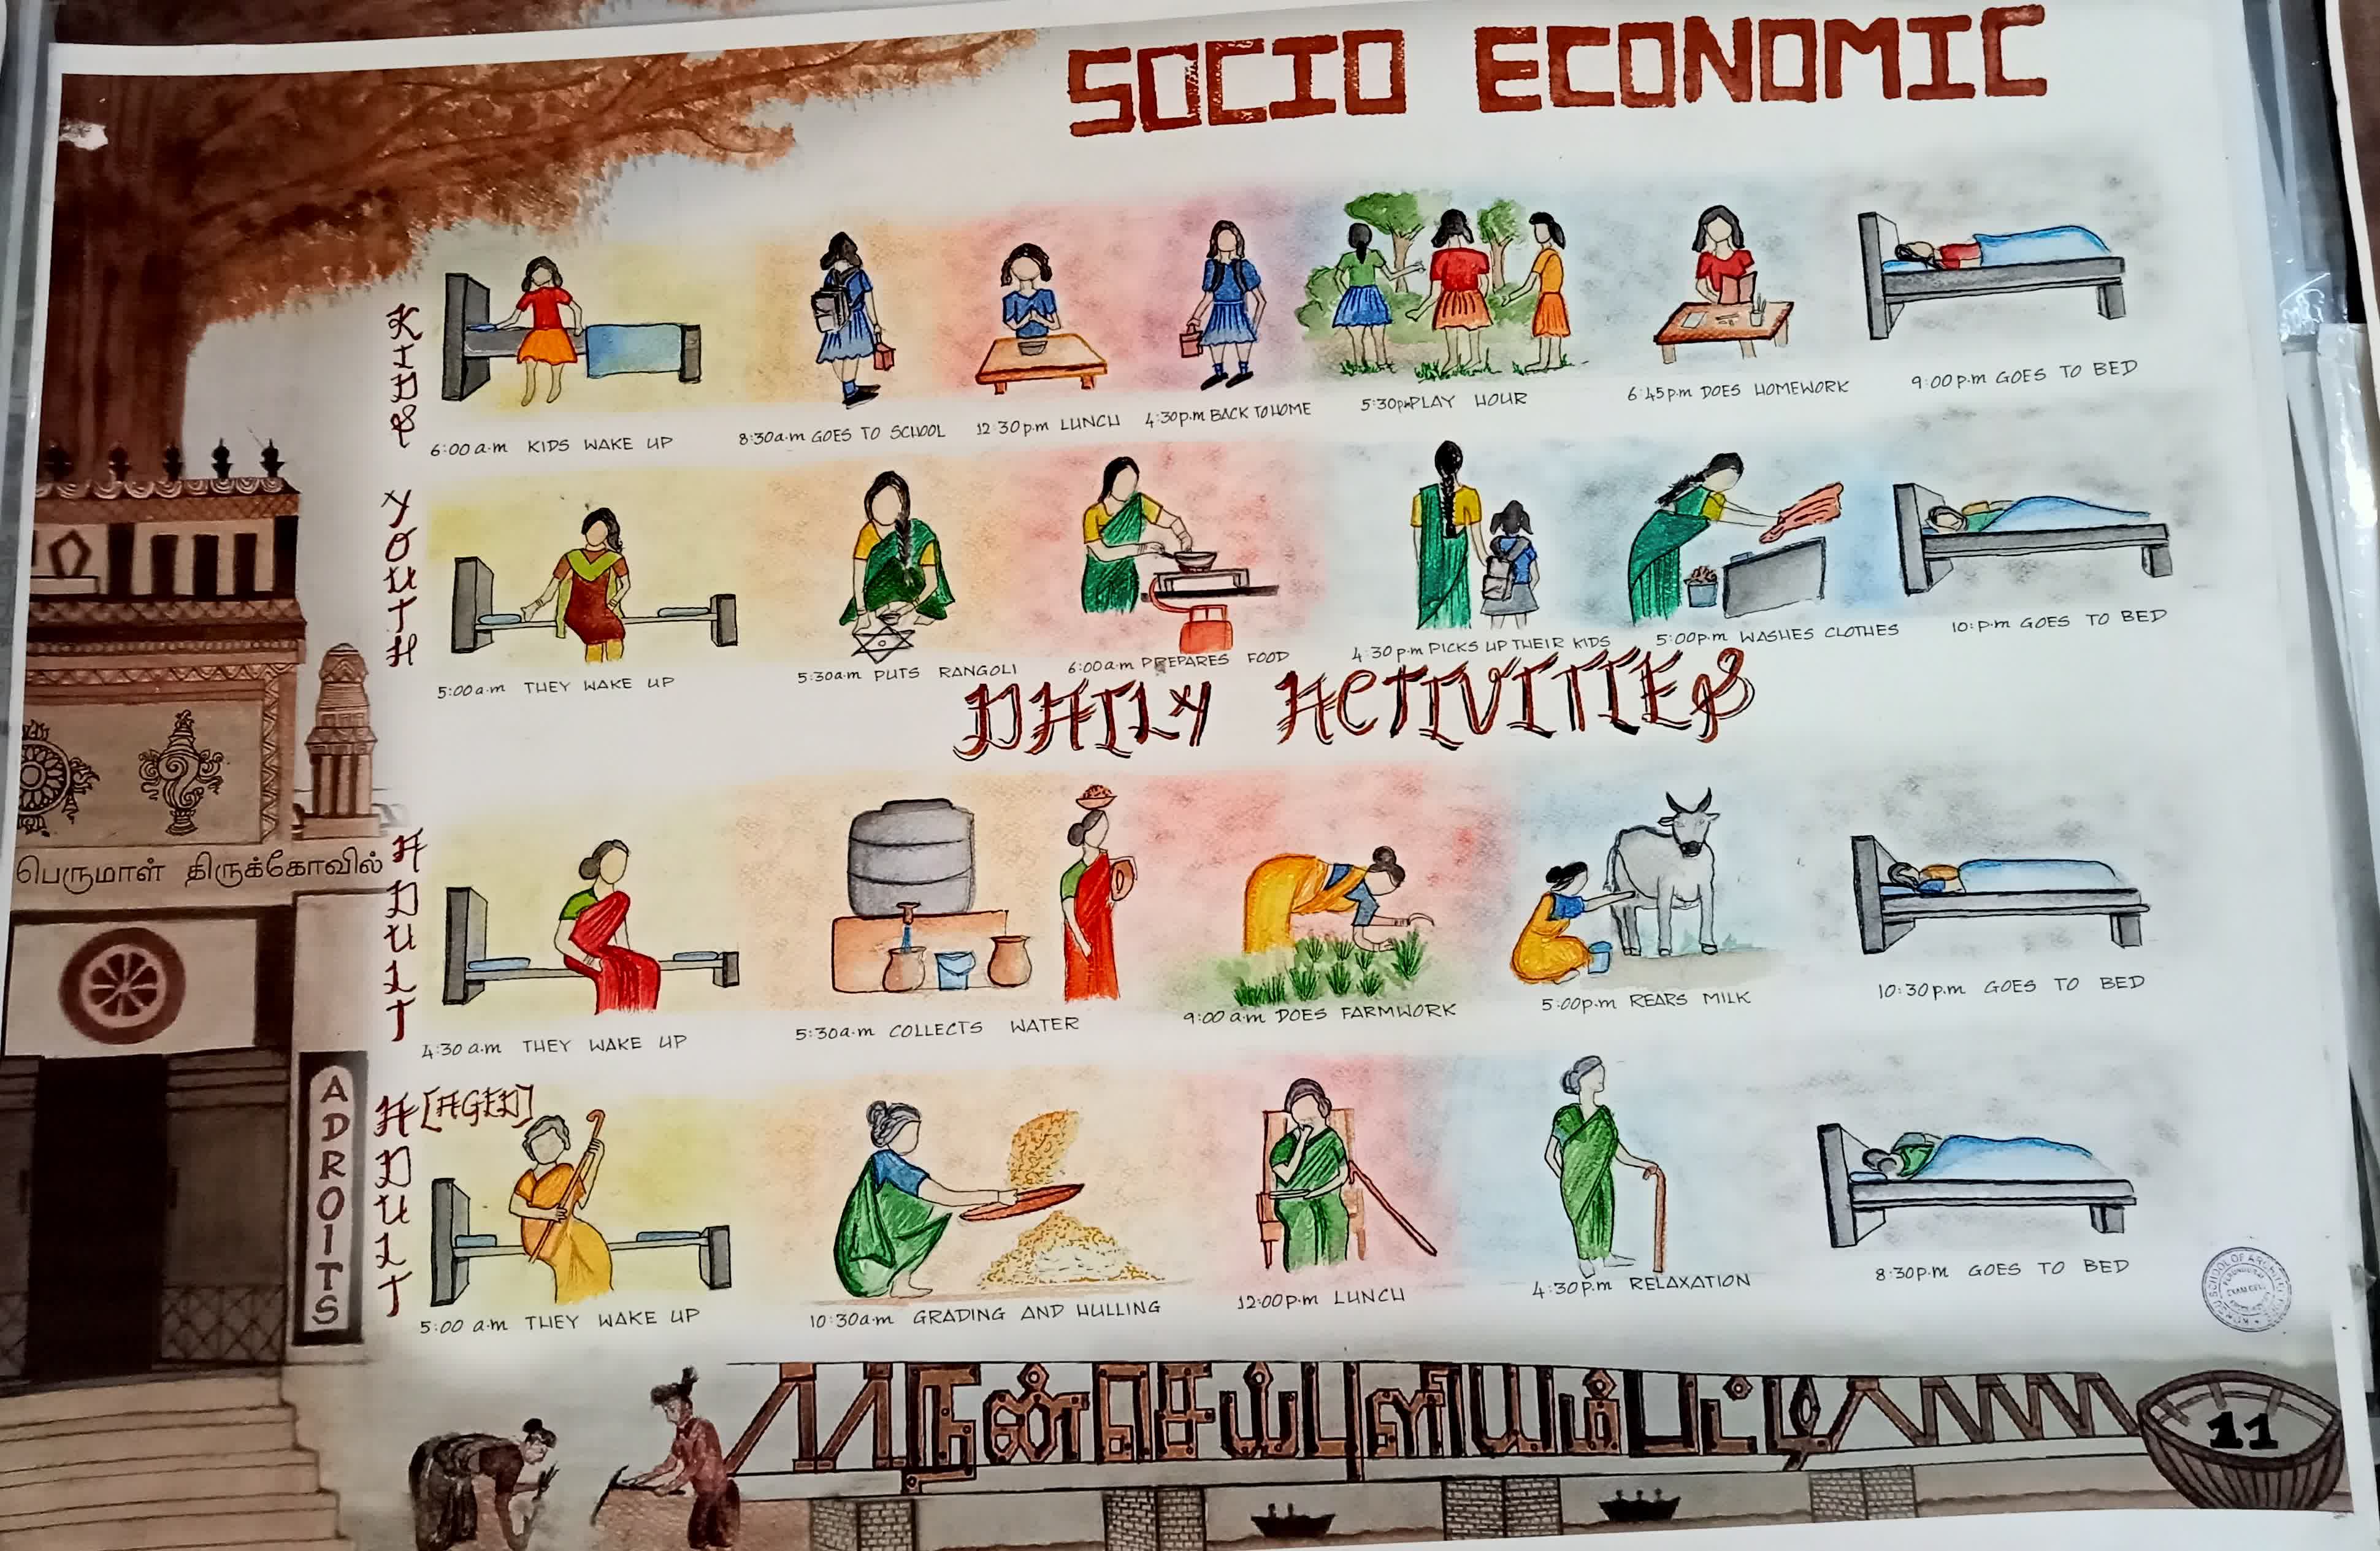 SOCIO ECONOMIC
KIDS
6:00 a.m KIDS WAKE UP
8:30a.m GOES TO SCHOOL
12:30p.m LUNCH
4:30p.m BACK TO HOME
5:30p.m PLAY HOUR
6:45p.m DOES HOMEWORK
9:00p.m GOES TO BED
YOUTH
5:00a.m THEY WAKE UP
5:30am PUTS RANGOLI
6:00a.m PREPARES FOOD
4:30p.m PICKS UP THEIR KIDS
5:00p.m WASHES CLOTHES
10:P.M GOES TO BED
DAILY ACTIVITIES
பெருமாள் திருக்கோவில்
ADULT
4:30a.m THEY WAKE UP
5:30a.m COLLECTS WATER
9:00a.m DOES FARMWORK
5:00p.m REARS MILK
10:30p.m GOES TO BED
ADROITS
ADULT [AGED]
5:00 a.m THEY WAKE UP
10:30a.m GRADING AND HULLING
12:00P.m LUNCH
4:30p.m RELAXATION
8:30P.m GOES TO BED
நன்செய்புளியம்பட்டி
11